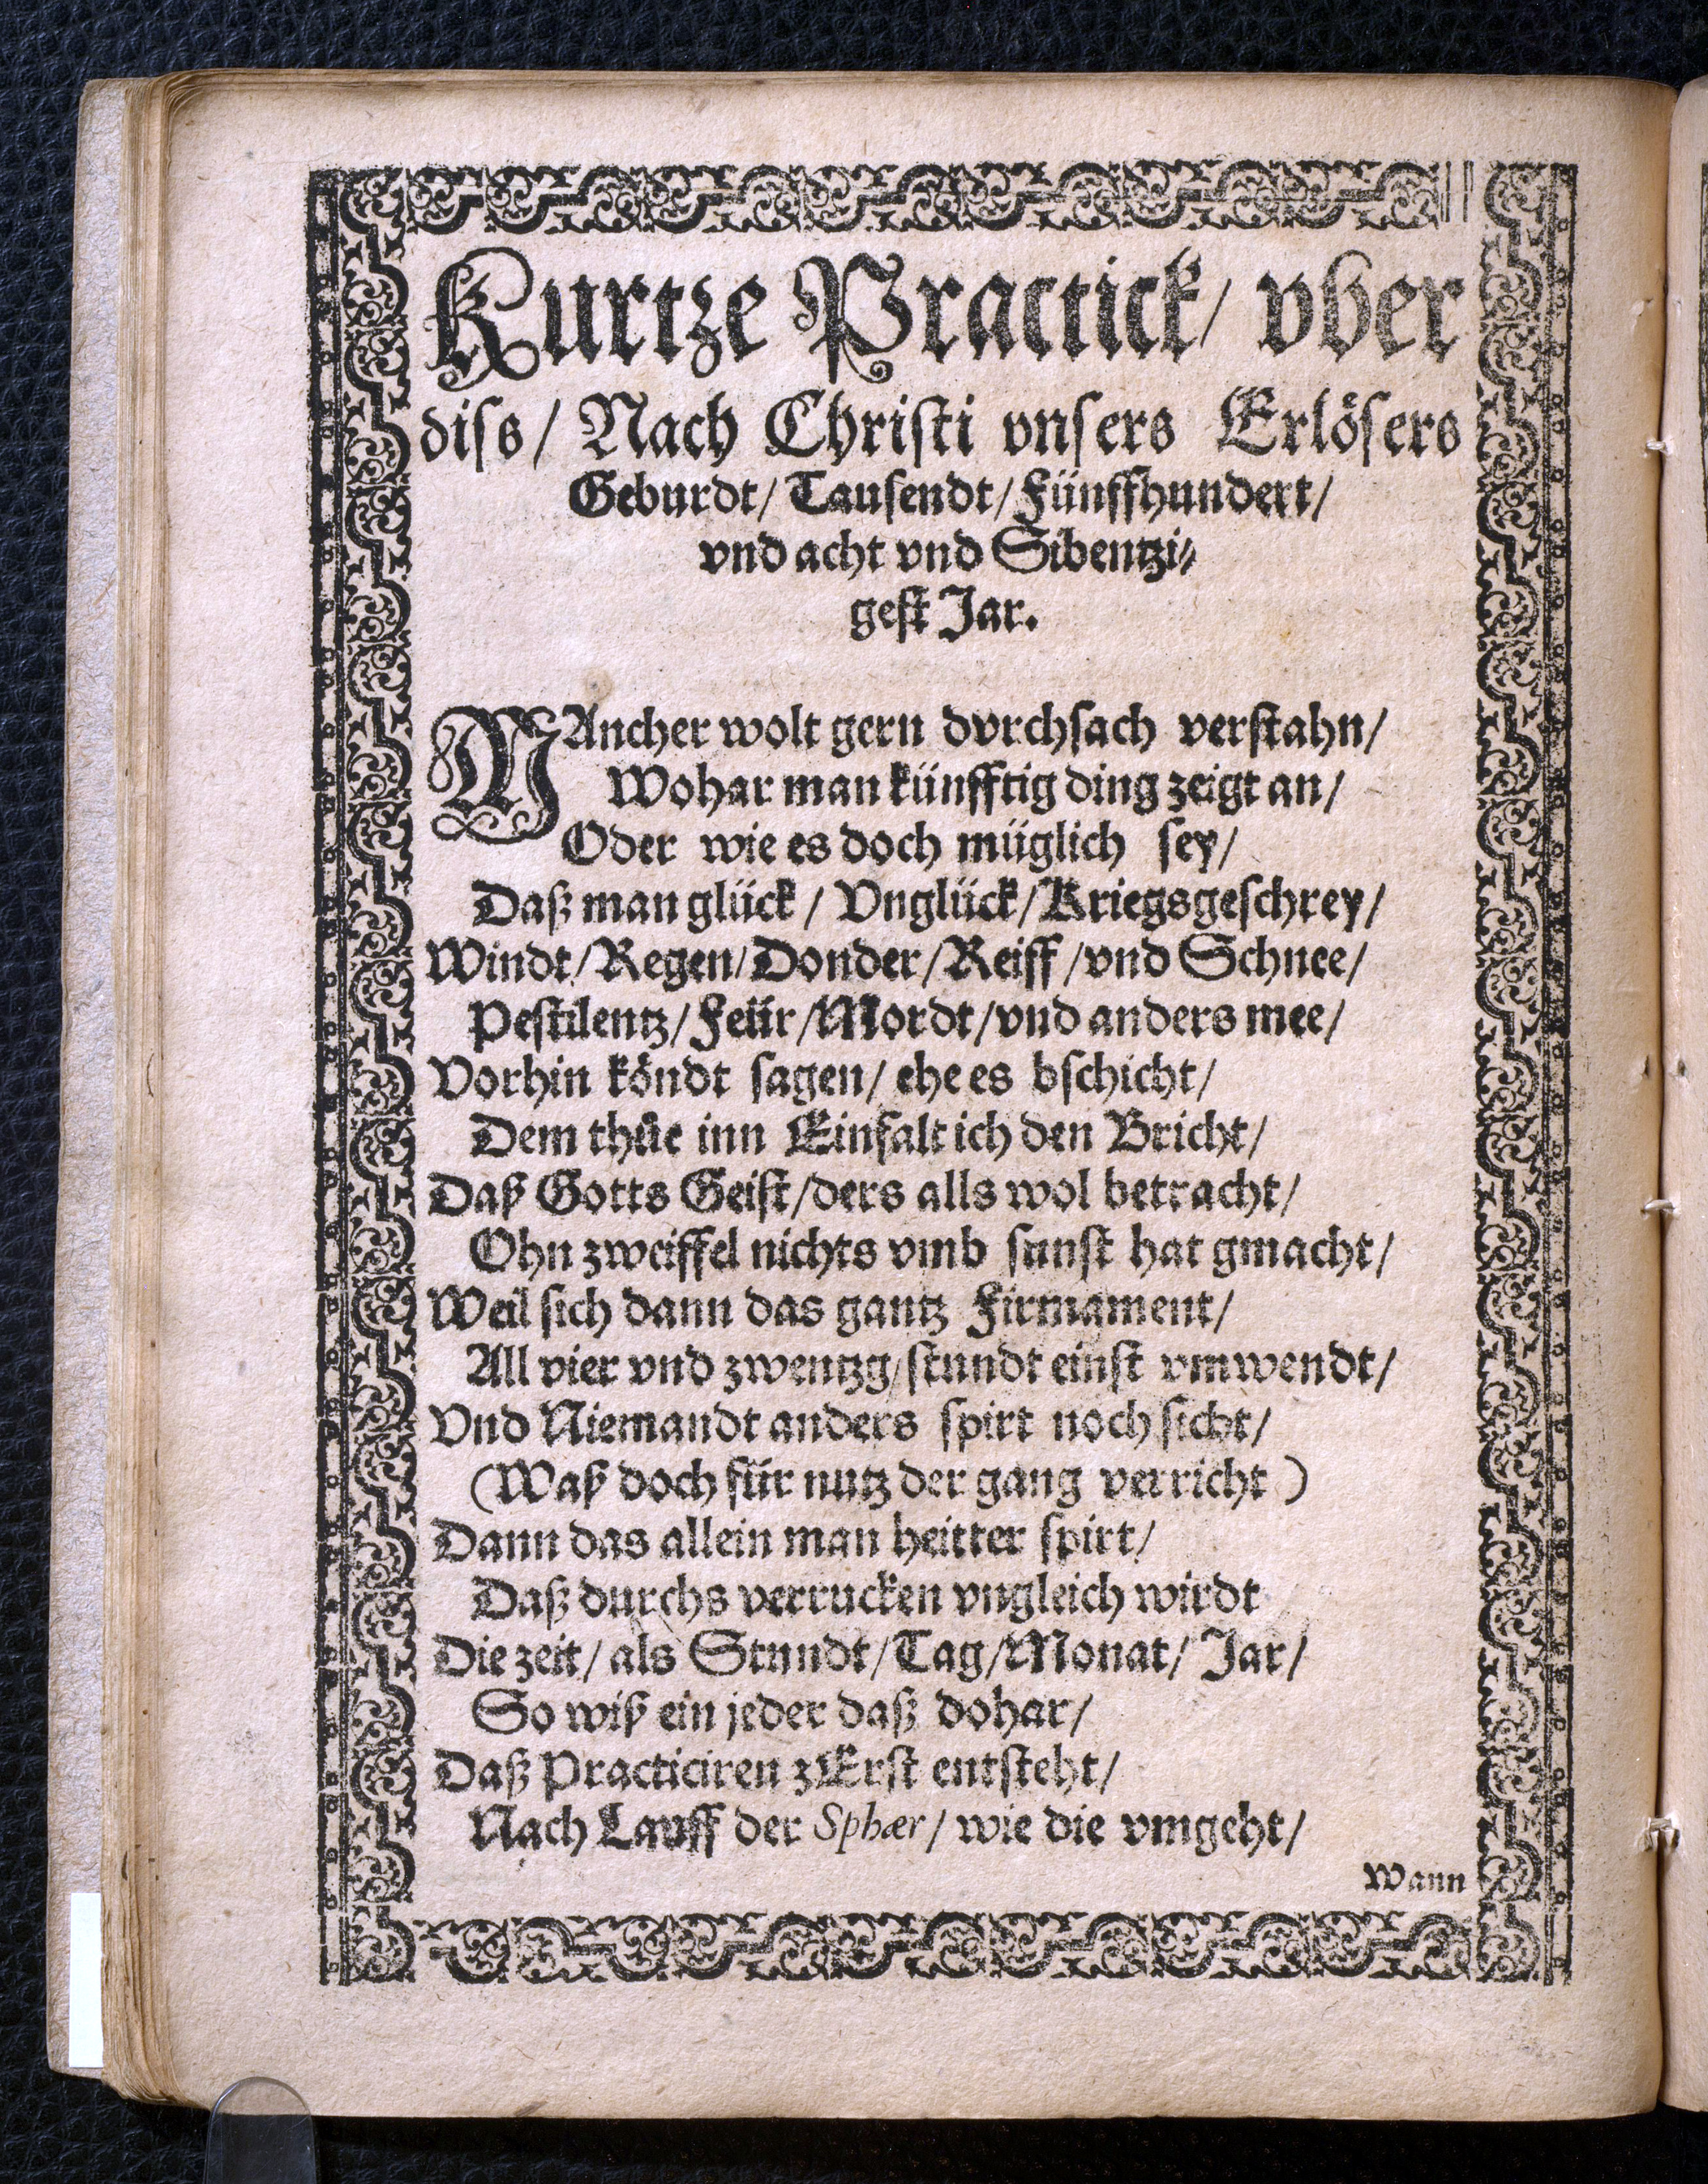 Kurtze Practick/ vber
diss/ Nach Christi vnsers Erlösers
Geburdt/ Tausendt/ Fünffhundert/
vnd acht vnd Sibentzi⸗
gest Jar.
MAncher wolt gern dvrchsach verstahn/
Wohar man künfftig ding zeigt an/
Oder wie es doch müglich sey/
Daß man glück/ Vnglück/ Kriegsgeschrey/
Windt/ Regen/ Donder/ Reiff/ vnd Schnee/
Pestilentz/ Feür/ Mordt/ vnd anders mee/
Vorhin köndt sagen/ ehe es bschicht/
Dem thůe inn Einfalt ich den Bricht/
Daß Gotts Geist/ ders alls wol betracht/
Ohn zweiffel nichts vmb sunst hat gmacht/
Weil sich dann das gantz Firmament/
All vier vnd zwentzg/ stundt einst vmwendt/
Vnd Niemandt anders spirt noch sicht/
(Waß doch für nutz der gang verricht)
Dann das allein man heitter spirt/
Daß durchs verrucken vngleich wirdt
Die zeit/ als Stundt/ Tag/ Monat/ Jar/
So wiß ein jeder daß dohar/
Daß Practiciren zErst entsteht/
Nach Lauff der Sphær/ wie die vmgeht/
Wann